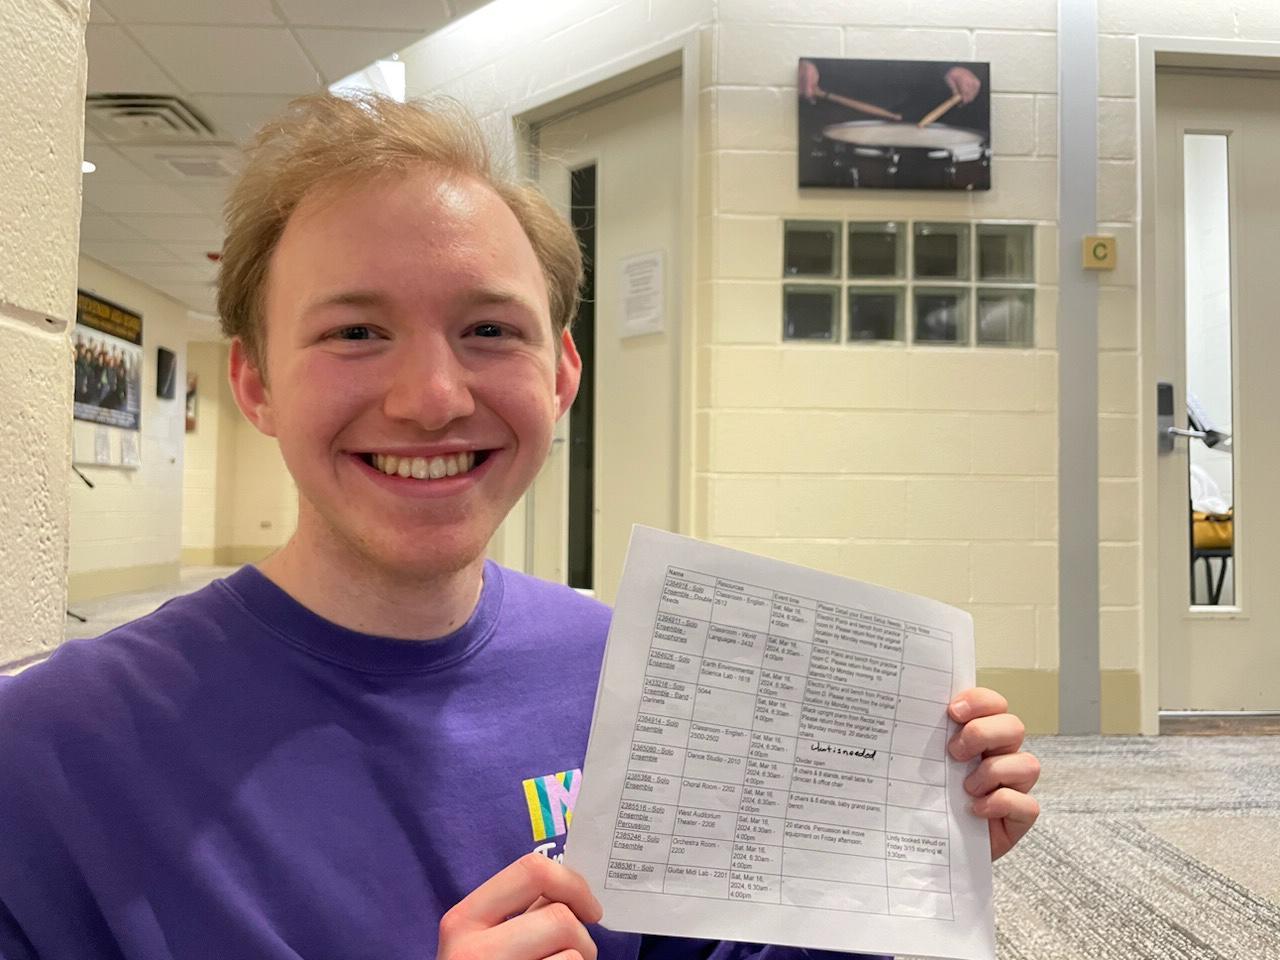 C
Name
Resources
Event time
Please Detail your Event Setup Needs
Lindy Notes
2384918 - Solo
Ensemble - Double
Reeds
Classroom - English -
2612
Sat, Mar 16,
2024, 6:30am -
4:00pm
Electric Piano and bench from practice
room H. Please return from the original
location by Monday morning. 5 stands/5
chairs
x
2384911 - Solo
Ensemble -
Saxophones
Classroom - World
Languages - 2432
Sat, Mar 16,
2024, 6:30am -
4:00pm
Electric Piano and bench from practice
room C. Please return from the original
location by Monday morning. 10
stands/10 chairs
x
2384926 - Solo
Ensemble
Earth Environmental
Science Lab - 1618
Sat, Mar 16,
2024, 6:30am -
4:00pm
Electric Piano and bench from Practice
Room D. Please return from the original
location by Monday morning.
x
2433216 - Solo
Ensemble - Band -
Clarinets
5044
Sat, Mar 16,
2024, 6:30am -
4:00pm
Black upright piano from Recital Hall.
Please return from the original location
by Monday morning. 20 stands/20
chairs
x
2384914 - Solo
Ensemble
Classroom - English -
2500-2502
Sat, Mar 16,
2024, 6:30am -
4:00pm
Divider open
x
2385060 - Solo
Ensemble
Dance Studio - 2010
Sat, Mar 16,
2024, 6:30am -
4:00pm
8 chairs & 8 stands, small table for
clinician & office chair
x
2385368 - Solo
Ensemble
Choral Room - 2202
Sat, Mar 16,
2024, 6:30am -
4:00pm
8 chairs & 8 stands, baby grand piano,
bench
2385516 - Solo
Ensemble -
Percussion
West Auditorium
Theater - 2206
Sat, Mar 16,
2024, 6:30am -
4:00pm
20 stands. Percussion will move
equipment on Friday afternoon.
Lindy booked WAud on
Friday 3/15 starting at
3:30pm.
2385246 - Solo
Ensemble
Orchestra Room -
2200
Sat, Mar 16,
2024, 6:30am -
4:00pm
2385361 - Solo
Ensemble
Guitar Midi Lab - 2201
Sat, Mar 16,
2024, 6:30am -
4:00pm